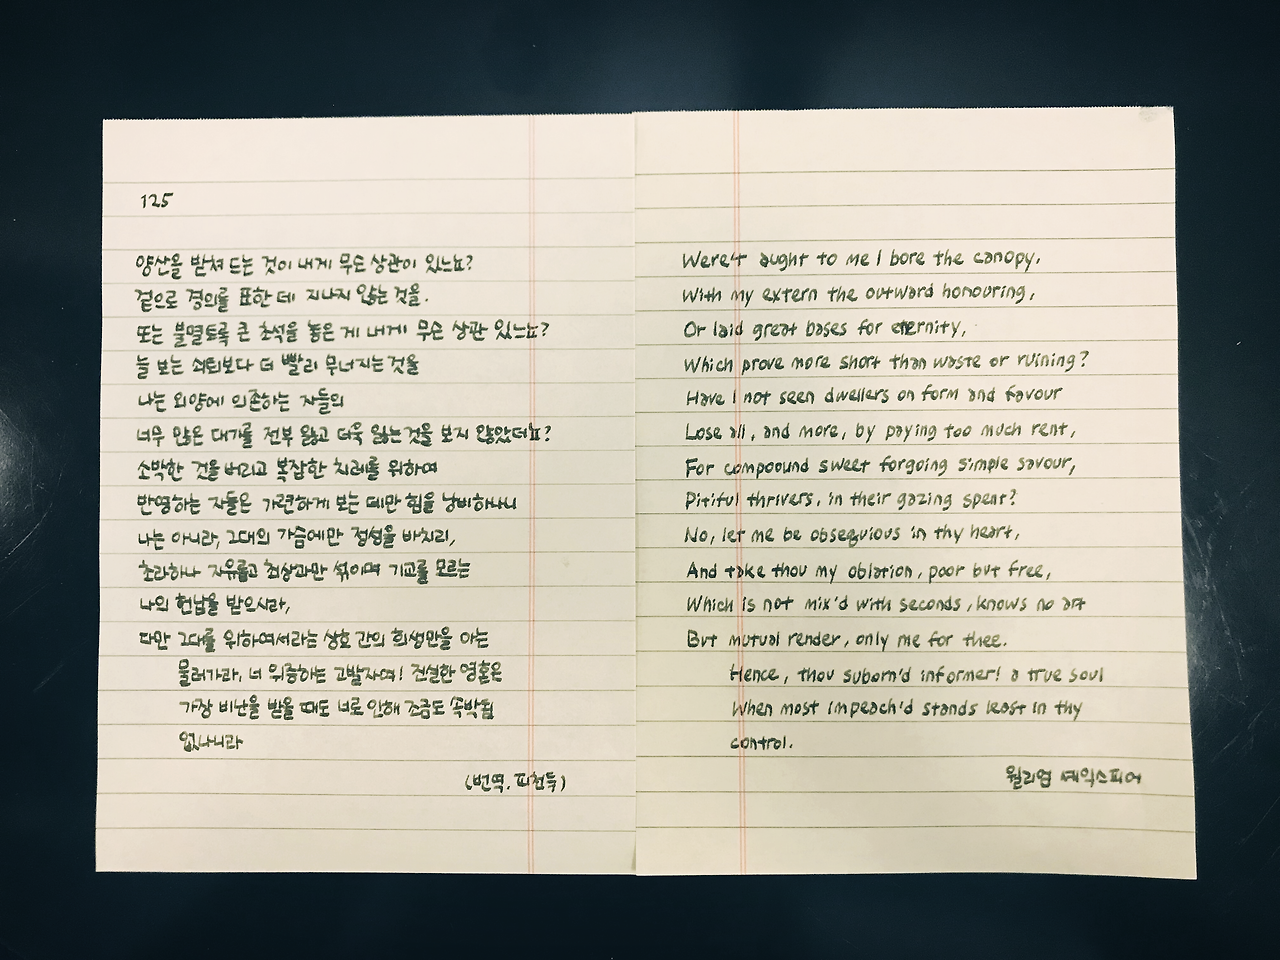 125
양산을 받쳐 드는 것이 내게 무슨 상관이 있느뇨?
겉으로 경의를 표한 데 지나지 않는 것을.
또는 불멸토록 큰 초석을 놓은 게 내게 무슨 상관 있느뇨?
늘 보는 쇠퇴보다 더 빨리 무너지는 것을
나는 외양에 의존하는 자들의
너무 많은 대가를 전부 잃고 더욱 잃는 것을 보지 않았더뇨?
소박한 것을 버리고 복잡한 치레를 위하여
번영하는 자들은 가련하게 보는 데만 힘을 낭비하나니
나는 아니라, 그대의 가슴에만 정성을 바치리,
초라하나 자유롭고 최상과만 섞이며 기교를 모르는
나의 헌납을 받으시라,
다만 그대를 위하여서라는 상호 간의 희생만을 아는
물러가라, 너 위증하는 고발자여! 진실한 영혼은
가장 비난을 받을 때도 너로 인해 조금도 속박됨
없나니라
(번역. 피천득)
Were't aught to me I bore the canopy,
With my extern the outward honouring,
Or laid great bases for eternity,
Which prove more short than waste or ruining?
Have I not seen dwellers on form and favour
Lose all, and more, by paying too much rent,
For compoound sweet forgoing simple savour,
Pitiful thrivers, in their gazing spent?
No, let me be obsequious in thy heart,
And take thou my oblation, poor but free,
Which is not mix'd with seconds, knows no art
But mutual render, only me for thee.
Hence, thou suborn'd informer! a true soul
When most impeach'd stands least in thy
control.
윌리엄 셰익스피어